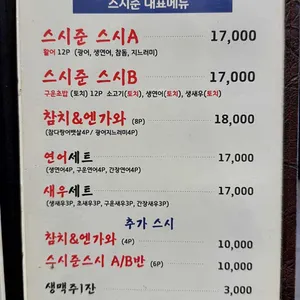 스시준 대표메뉴
스시준 스시A 17,000
활어 12P (광어, 생연어, 참돔, 지느러미)
스시준 스시B 17,000
구운초밥 (토치) 12P 소고기(토치), 생연어(토치), 생새우(토치)
참치&엔가와 (8P) 18,000
(참다랑어뱃살4P / 광어지느러미4P)
연어세트 17,000
(생연어4P, 구운연어4P, 간장연어4P)
새우세트 17,000
(생새우3P, 초새우3P, 구운새우3P, 간장새우3P)
추가 스시
참치&엔가와 (4P) 10,000
스시준스시 A/B반 (6P) 10,000
생맥주1잔 3,000